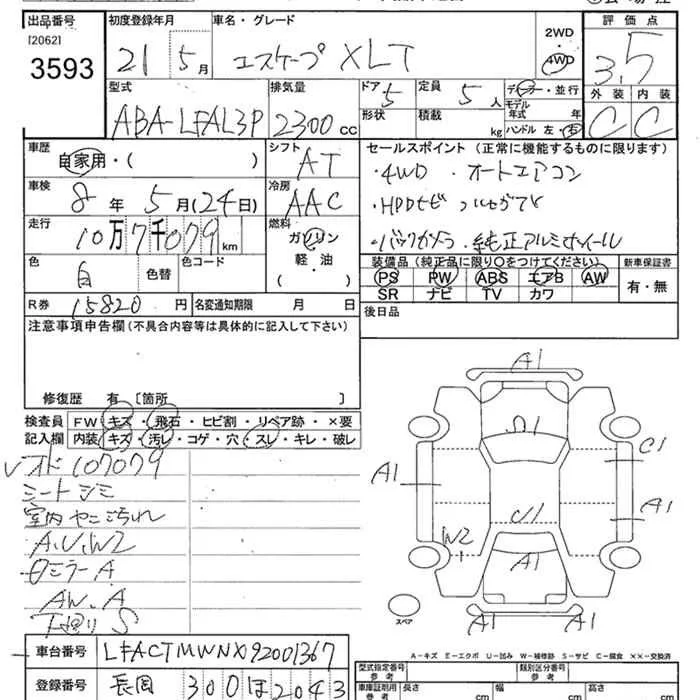 出品番号 初度登録年月 車名・グレード 評価点
[2062] 3593
21 5月 エスケープ XLT 2WD 4WD 3.5
型式 排気量 ドア 定員 ディーラー・並行 外装 内装
ABA-LFAL3P 2300cc 5 5人 モデル年式 年 C C
形状 積載 kg ハンドル 左・右
車歴 シフト セールスポイント (正常に機能するものに限ります)
自家用・( ) AT ・4WD ・オートエアコン
車検 冷房 ・HDDナビ
8年 5月 (24日) AAC
走行 燃料 ・バックカメラ ・純正アルミホイール
10万7千079km ガソリン
色 色替 色コード 軽・油 装備品 (純正品に限り○をつけてください) 新車保証書
白 ( ) PS PW ABS エアB AW 有・無
SR ナビ TV カワ
R券 15820円 名変通知期限 月 日 後日品
注意事項申告欄 (不具合内容等は具体的に記入して下さい)
修復歴 有 [箇所 ]
検査員 FW キズ・飛石・ヒビ割・リペア跡・×要
記入欄 内装 キズ・汚レ・コゲ・穴・スレ・キレ・破レ
オド107079
シートシミ
室内ヤニ汚れ
A.U.W2
ミラーA
AW.A
下廻りS
A1
U1
C1
A1
A1
U1
W2
A1 A1
スペア
A-キズ E-エクボ U-凹み W-補修跡 S-サビ C-腐食 XX-交換済
車台番号 LFACTMWNX92001367
登録番号 長岡 300 ほ 2043
型式指定番号 参考 類別区分番号 参考
車庫証明用 参考 長さ cm 幅 cm 高さ cm